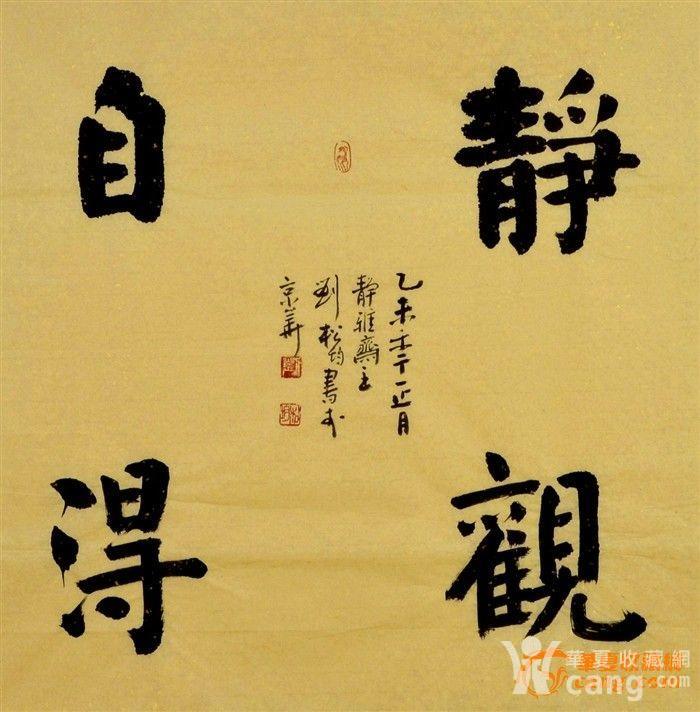 靜觀
自得
乙未年正月
靜雅齋主
劉松均書於
京華
華夏收藏網
cang.com